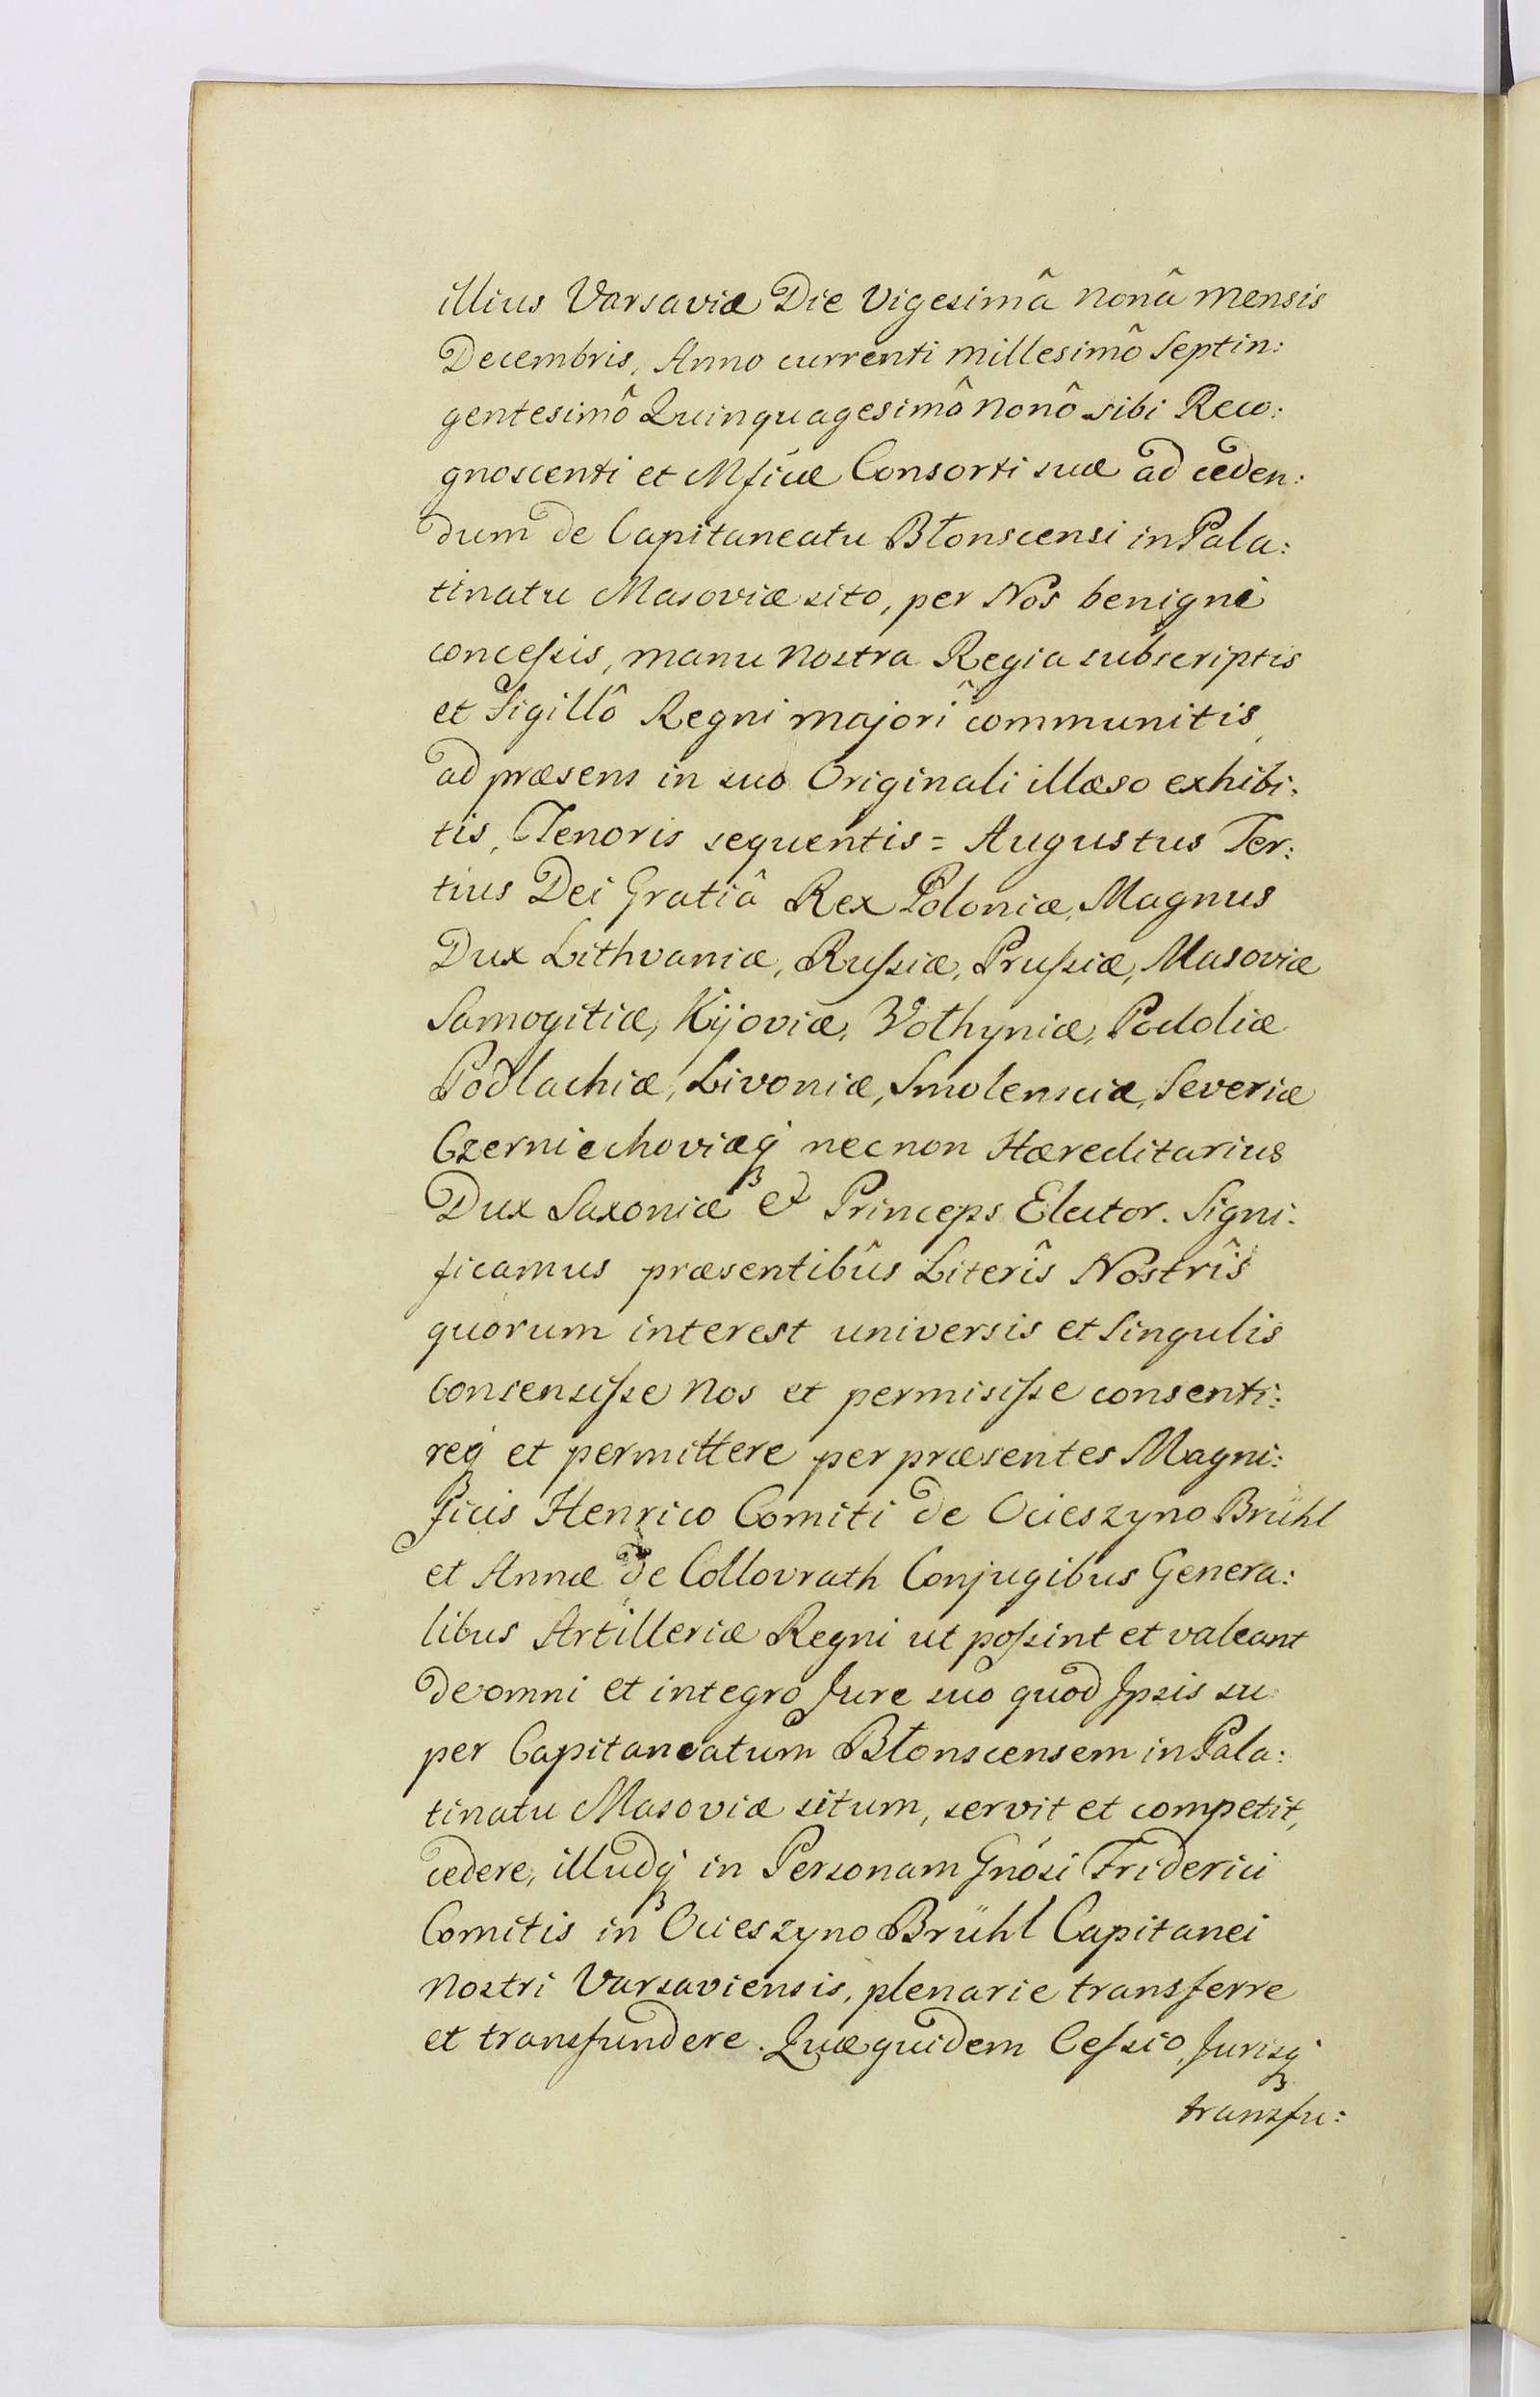 illius Varsaviæ Die Vigesimâ nonâ mensis
Decembris, Anno currenti millesimô Septin:
gentesimô Quinquagesimô Nonô sibi Reco:
gnoscenti et Mficæ Consorti suæ ad ceden:
dum de Capitaneatu Błonscensi in Pala:
tinatu Masoviæ sito, per Nos benigne
conceſsis, manu Nostra Regia subscriptis
et Sigillô Regni majori communitis,
ad præsens in suo Originali illæso exhibi:
tis, Tenoris sequentis = Augustus Ter:
tius Dei Gratiâ Rex Poloniæ, Magnus
Dux Lithvaniæ, Ruſsiæ, Pruſsiæ, Masoviæ
Samogitiæ, Kijoviæ, Vołhyniæ, Podoliæ
Podlachiæ, Livoniæ, Smolensciæ, Severiæ
Czerniechoviæq́ꝫ necnon Hæreditarius
Dux Saxoniæ et Princeps Elector. Signi:
ficamus præsentibûs Literîs Nostrîs
quorum interest universis et Singulis
Consensiſse Nos et permisiſse consenti:
req́ꝫ et permittere per præsentes Magni:
ficis Henrico Comiti de Ocieszyno Brühl
et Annæ de Collovrath Conjugibus Genera:
libus Artilleriæ Regni ut poſsint et valeant
de omni et integro Jure suo quod Ipsis su
per Capitaneatum Błonscensem in Pala:
tinatu Masoviæ situm, servit et competit,
cedere, illudq́ꝫ in Personam Gnósi Friderici
Comitis in Ocieszyno Brühl Capitanei
Nostri Varsaviensis, plenarie transferre
et transfundere. Quæquidem Ceſsio, Jurisq́ꝫ
transfu: